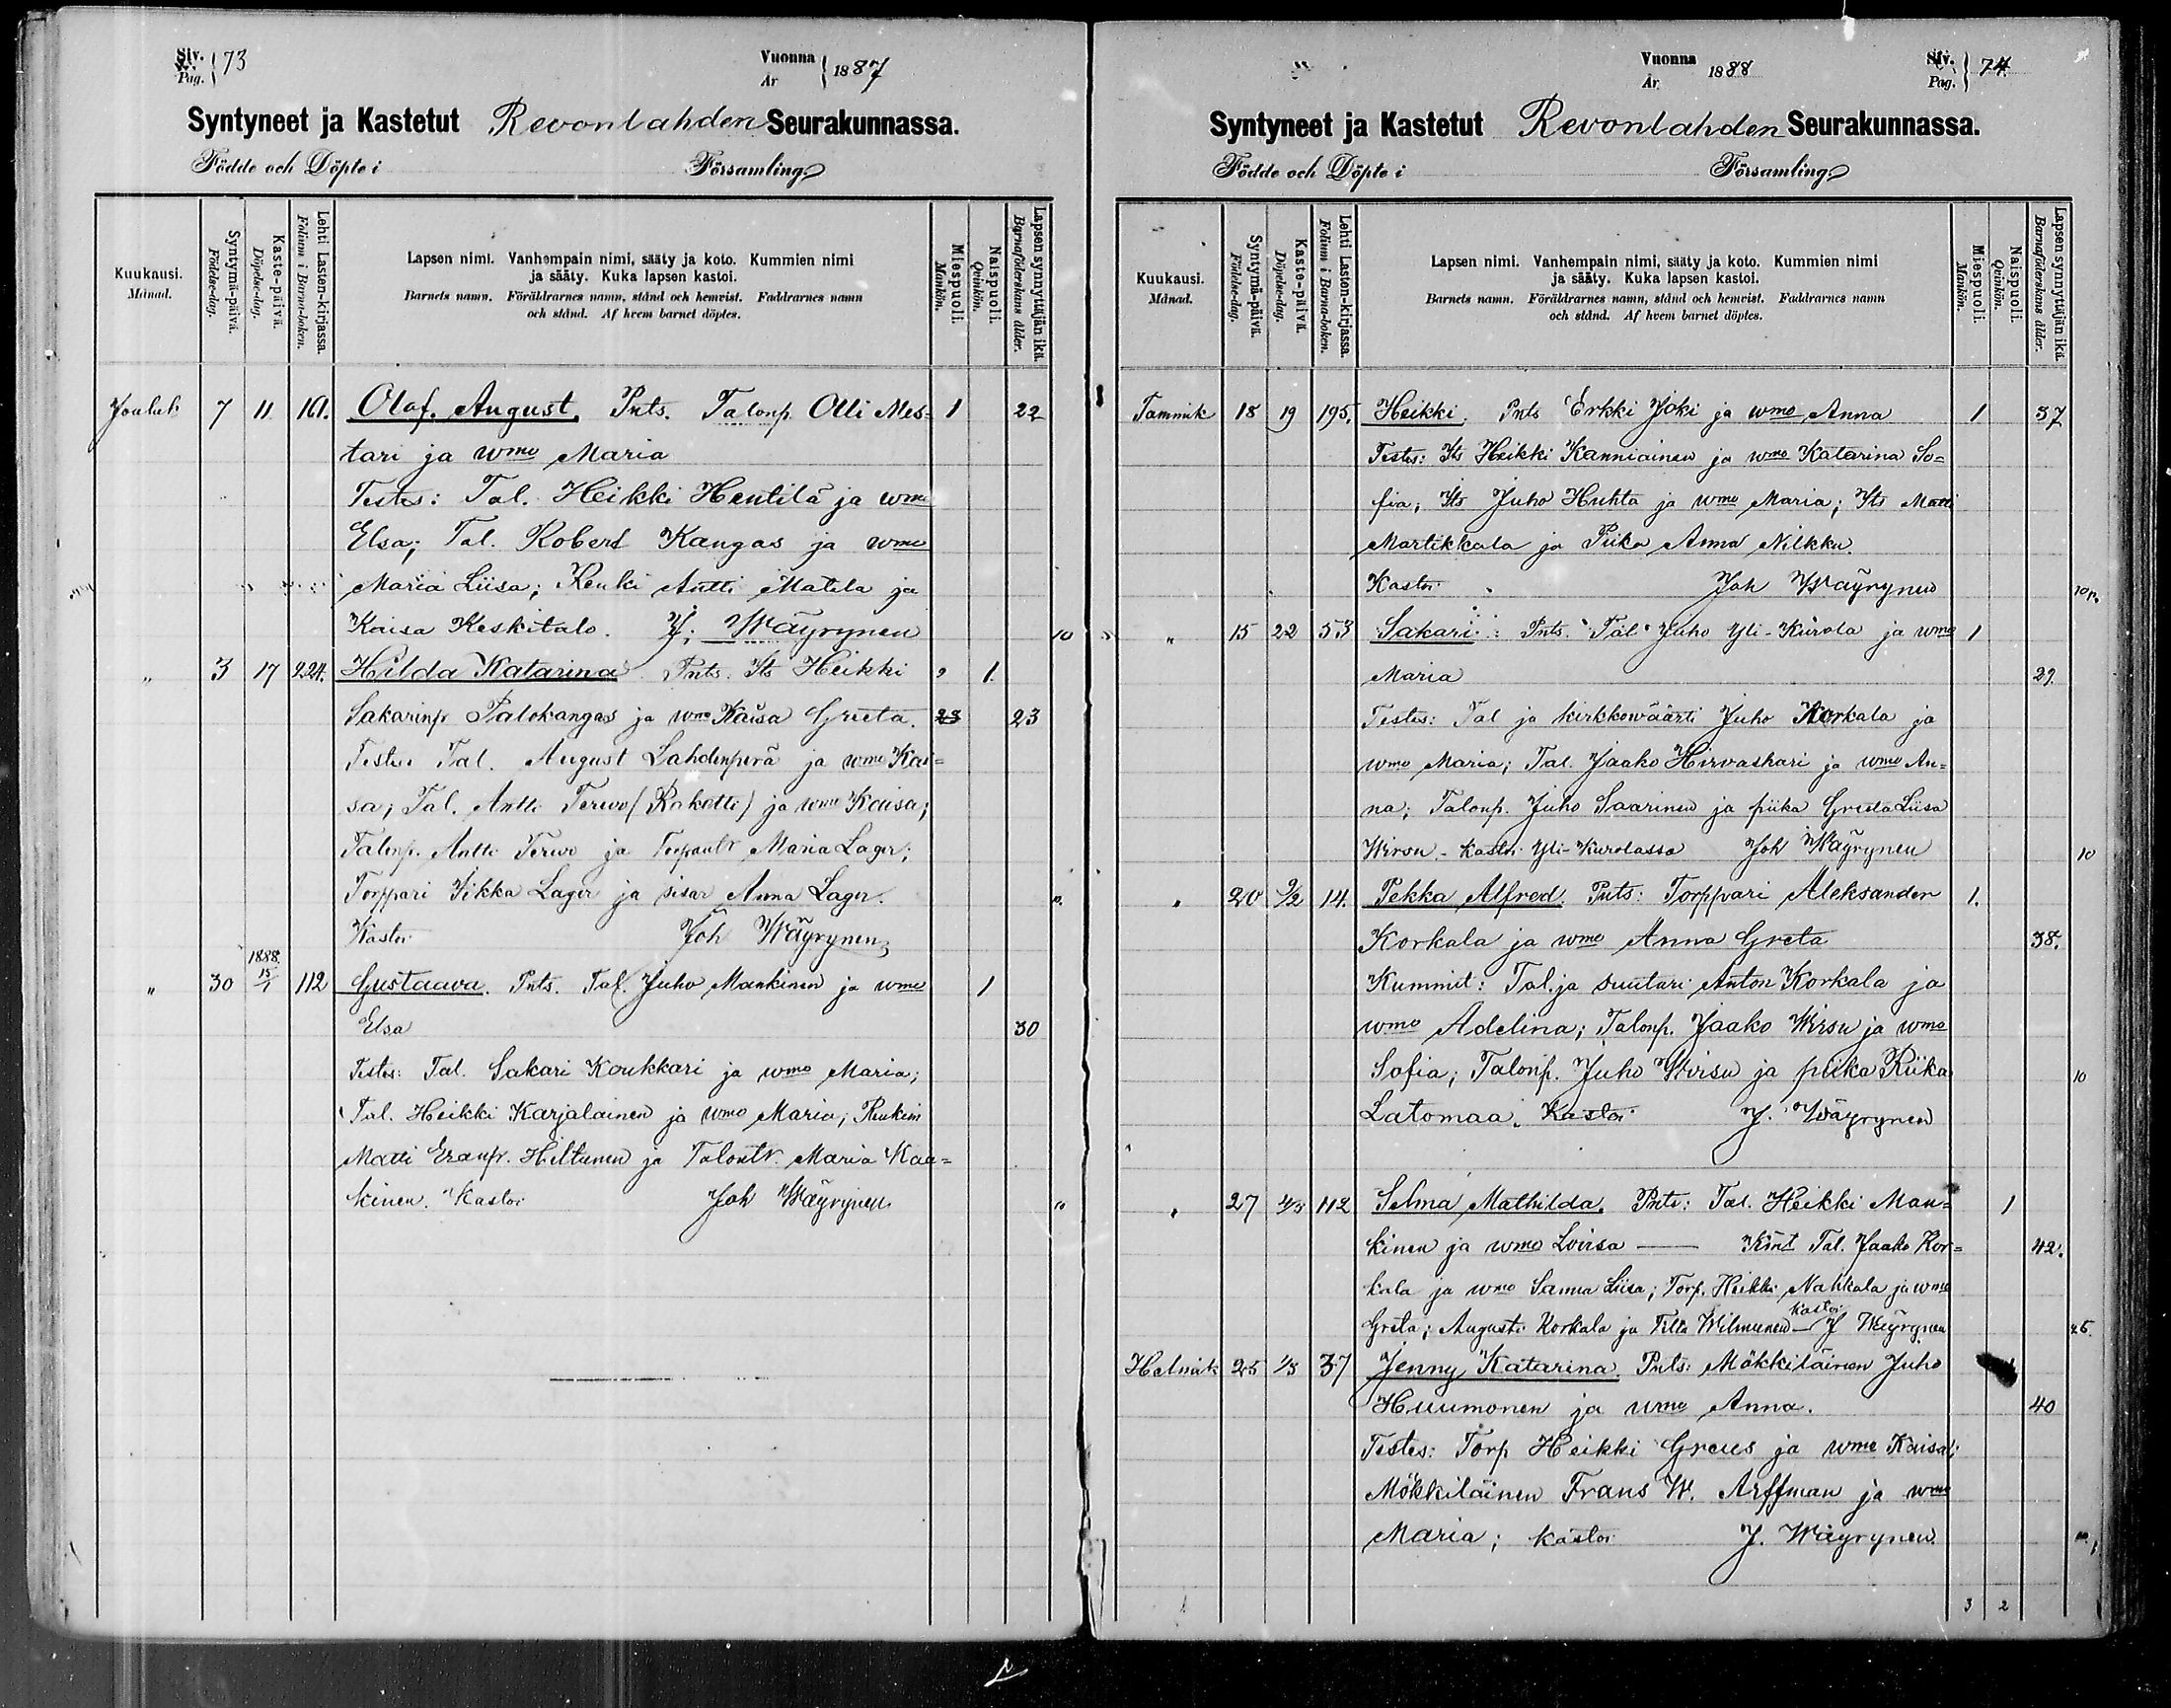 Siv. Pag. } 73
Vuonna År } 1887
Syntyneet ja Kastetut Revonlahden Seurakunnassa.
Födde och Döpte i Församling
Kuukausi. Månad.
Syntymä-päivä. Födelse-dag.
Kaste-päivä. Döpelse-dag.
Lehti Lasten-kirjassa. Folium i Barna-boken.
Lapsen nimi. Vanhempain nimi, sääty ja koto. Kummien nimi
ja sääty. Kuka lapsen kastoi.
Barnets namn. Föräldrarnes namn, stånd och hemvist. Faddrarnes namn
och stånd. Af hvem barnet döptes.
Miespuoli. Mankön.
Naispuoli. Qvinkön.
Lapsen synnyttäjän ikä. Barnaföderskans ålder.
Jouluk 7 11 161. Olof. August. Pnts. Talonp. Olli Mes= 1 22
tari ja wmo Maria
Testes: Tal. Heikki Hentilä ja wmo
Elsa; Tal. Robert Kangas ja wmo
Maria Liisa; Renki Antti Matila ja
Kaisa Keskitalo. J. Wäyrynen 10
" 3 17 224. Hilda Katarina Pnts. Its Heikki " 1.
Sakarinp Palokangas ja wmo Kaisa Greeta. 23 23
Testes Tal. August Lahdenperä ja wmo Kai=
sa; Tal. Antti Terwo (Rakotti) ja wmo Kaisa;
Talonp. Antti Terwo ja Maria Lager;
Torppari Iikka Lager ja sisar Anna Lager.
Kastoi Joh Wäyrynen
" 30 1888. 15/1 112 Gustaava. Pnts. Tal. Juho Mankinen ja wmo 1
Elsa 30
Testes: Tal. Sakari Koukkari ja wmo Maria;
Tal. Heikki Karjalainen ja wmo Maria;
Matti Hiltunen ja Talontr. Maria Kaa=
kinen. Kastoi Joh Wäyrynen 10
Vuonna År 1888
Siv. Pag. } 74.
Syntyneet ja Kastetut Revonlahden Seurakunnassa.
Födde och Döpte i Församling
Kuukausi. Månad.
Syntymä-päivä. Födelse-dag.
Kaste-päivä. Döpelse-dag.
Lehti Lasten-kirjassa. Folium i Barna-boken.
Lapsen nimi. Vanhempain nimi, sääty ja koto. Kummien nimi
ja sääty. Kuka lapsen kastoi.
Barnets namn. Föräldrarnes namn, stånd och hemvist. Faddrarnes namn
och stånd. Af hvem barnet döptes.
Miespuoli. Mankön.
Naispuoli. Qvinkön.
Lapsen synnyttäjän ikä. Barnaföderskans ålder.
Tammik 18 19 195. Heikki. Pnts Erkki Joki ja wmo Anna 1 37
Testes: Its Heikki Kanniainen ja wmo Katarina So=
fia; Its Juho Huhta ja wmo Maria; Its Matti
Martikkala ja Piika Anna Nilkku.
Kastoi Joh Wäyrynen
" 15 22 53 Sakari: Pnts. Tal Juho Yli-Kurola ja wmo 1
Maria 29.
Testes: Tal ja kirkkowäärti Juho Korkala ja
wmo Maria; Tal. Jaako Hirvaskari ja wmo An=
na; Talonp. Juho Saarinen ja piika Greeta Liisa
Wirsu. - Kastoi Yli-Kurolassa Joh Wäyrynen 10
" 20 9/2 14. Pekka Alfred. Pnts: Torppari Aleksander 1.
Korkala ja wmo Anna Greta 38.
Kummit: Tal. ja suutari Anton Korkala ja
wmo Adelina; Talonp. Jaako Wirsu ja wmo
Sofia; Talonp. Juho Wirsu ja piika Riika 10
Latomaa. Kastoi J. Wäyrynen
" 27 4/3 112 Selma Mathilda. Pnts: Tal. Heikki Man= 1
kinen ja wmo Lovisa — Kmt Tal. Jaako Kor= 42.
kala ja wmo Sanna Liisa; Torp. Heikki Nahkala ja wmo
Greta; Augusti Korkala ja Tilta Wilmunen — Kastoi J Wäyrynen 25.
Helmik 25 1/3 37 Jenny Katarina. Pnts: Mökkiläinen Juho
Huumonen ja wmo Anna. 40
Testes: Torp Heikki Greus ja wmo Kaisa;
Mökkiläinen Frans W. Arffman ja wmo
Maria; kastoi J. Wäyrynen.
3 2